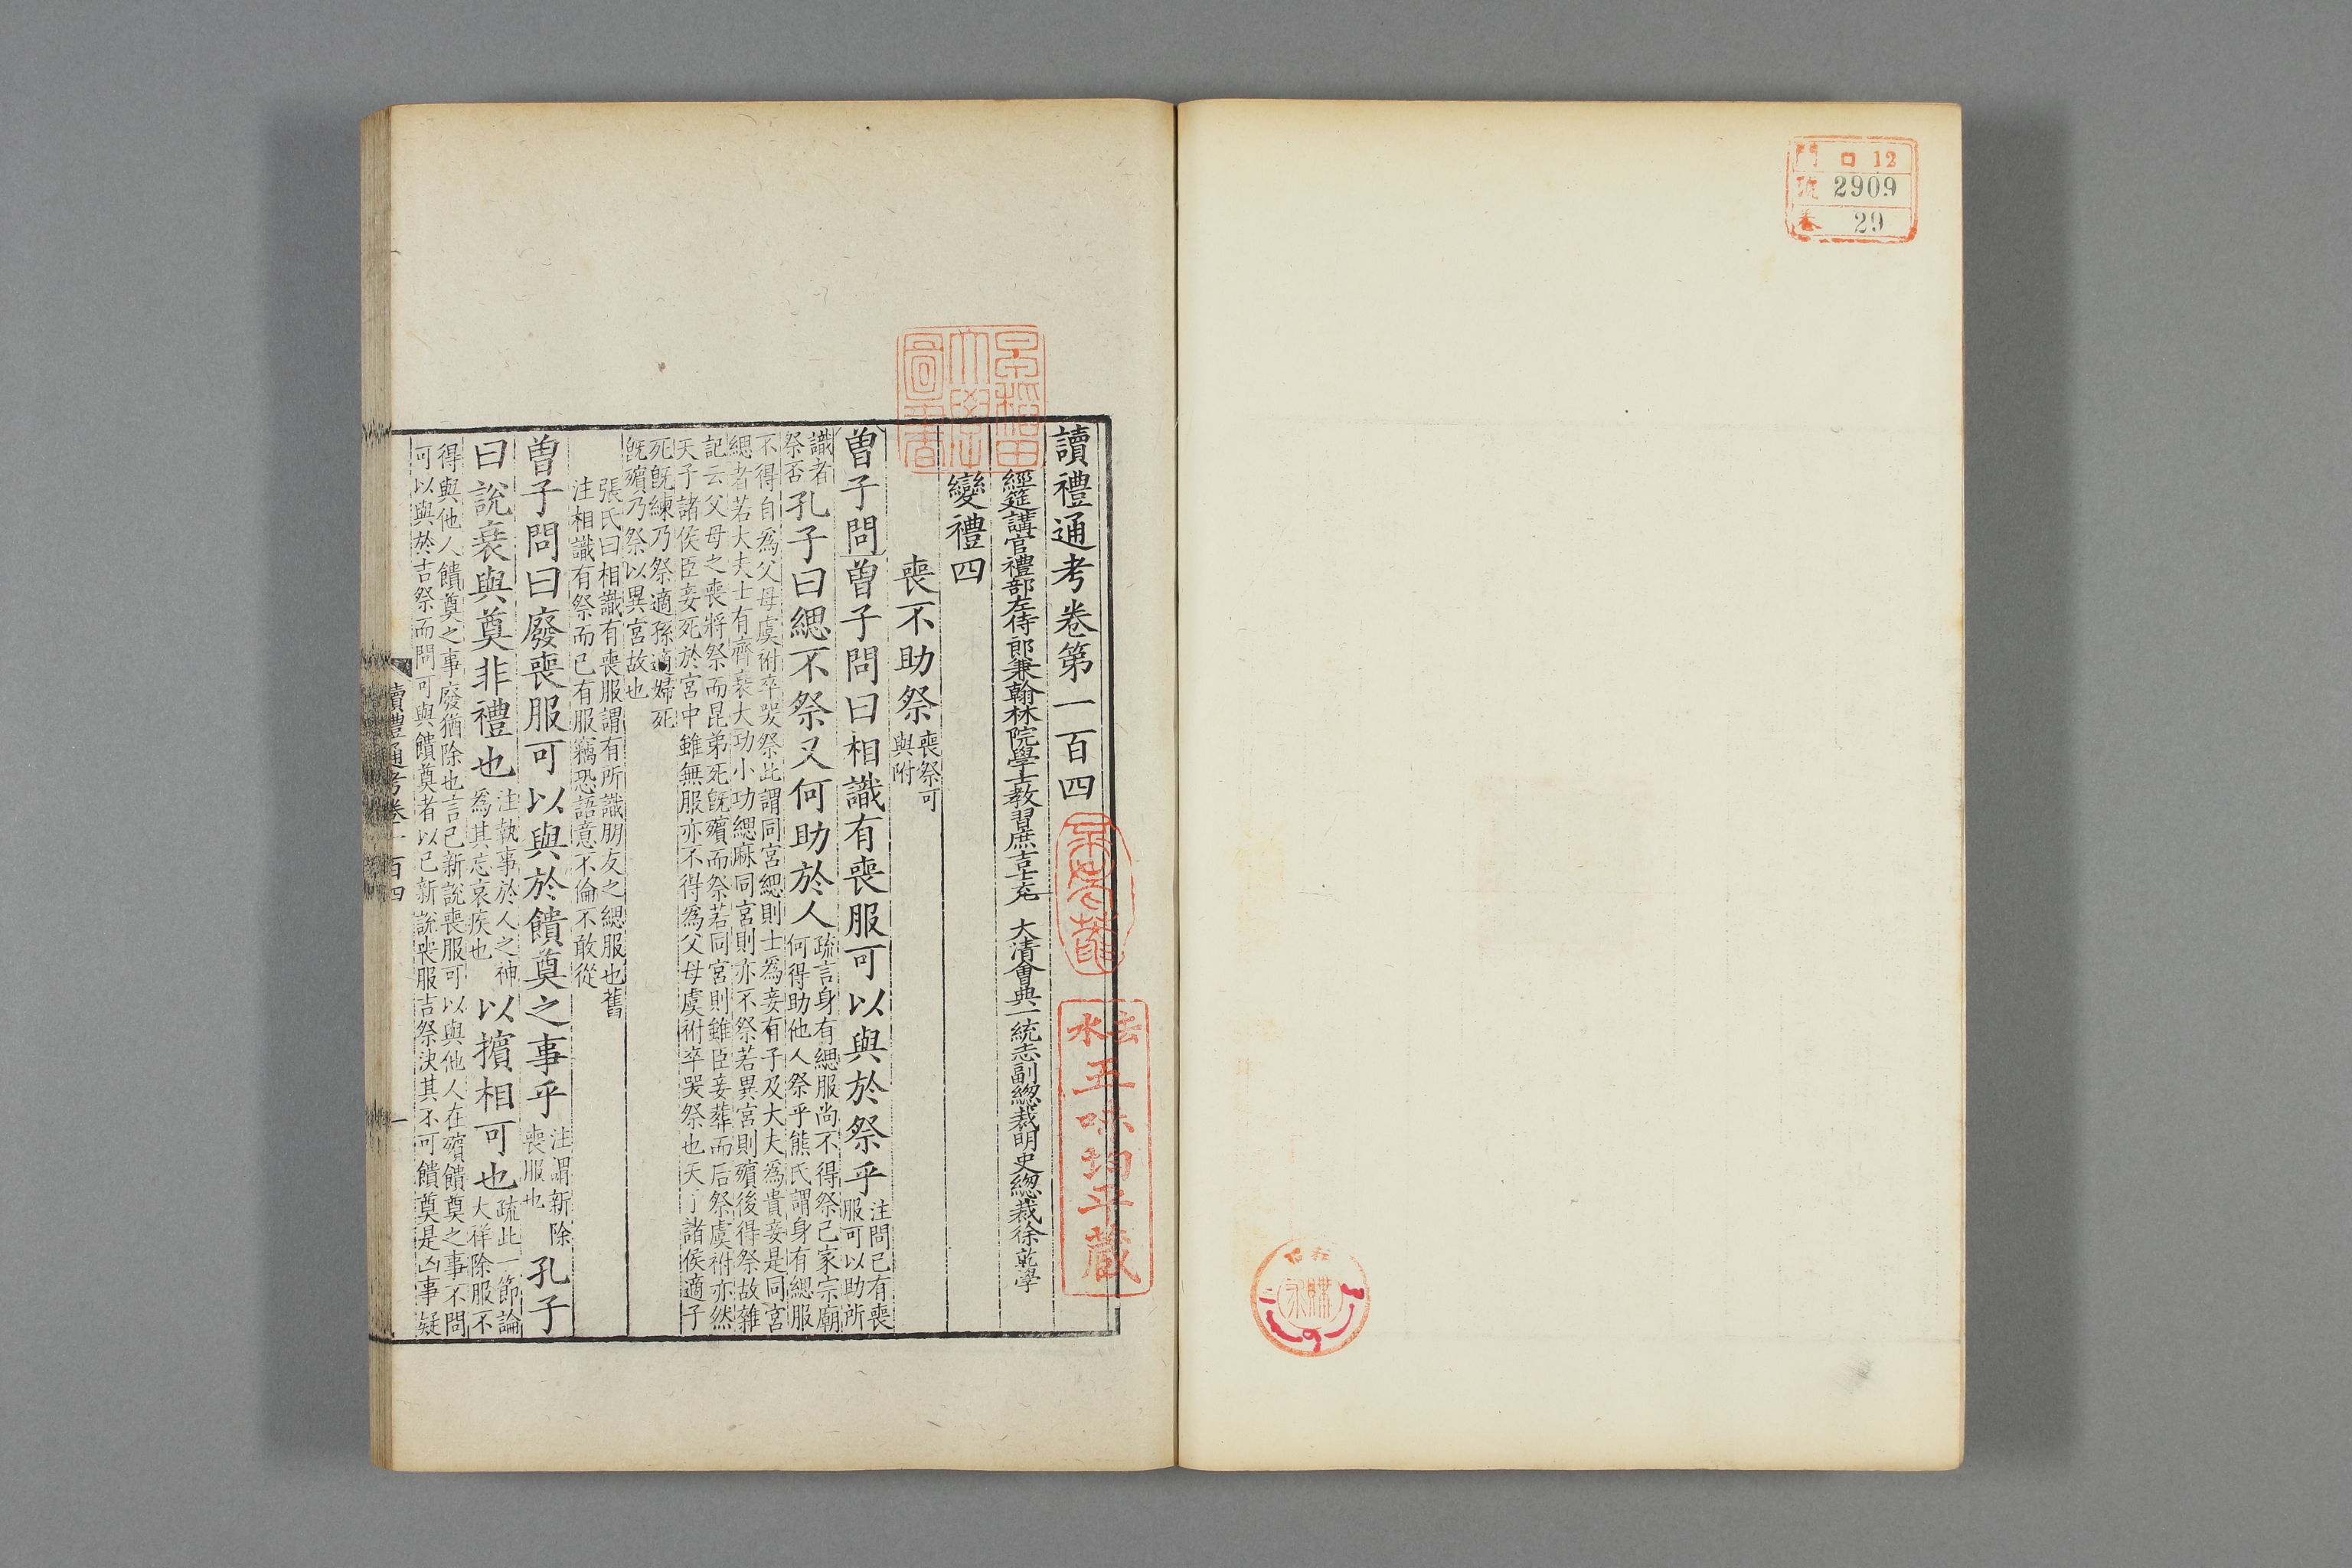 門 ロ 12
號 2909
卷 29
早稻田大學圖書
讀禮通考卷第一百四
經筵講官禮部左侍郎兼翰林院學士教習庶吉士充 大清會典一統志副總裁明史總裁徐乾學
變禮四
喪不助祭
喪祭可
與附
曽子問曽子問曰相識有喪服可以與於祭乎
注問已有喪
服可以助所
識者
祭否
孔子曰緦不祭又何助於人
疏言身有緦服尚不得祭己家宗廟
何得助他人祭乎熊氏謂身有緦服
不得自為父母虞祔卒哭祭此謂同宮緦則士為妾有子及大夫為貴妾是同宮
緦者若大夫士有齊衰大功小功緦麻同宮則亦不祭若異宮則殯後得祭故雜
記云父母之喪將祭而昆弟死既殯而祭若同宮則雖臣妾葬而后祭虞祔亦然
天子諸侯臣妾死於宮中雖無服亦不得為父母虞祔卒哭祭也天子諸侯適子
死既練乃祭適孫適婦死
既殯乃祭以異宮故也
張氏曰相識有喪服謂有所識朋友之緦服也舊
注相識有祭而己有服竊恐語意不倫不敢從
曽子問曰廢喪服可以與於饋奠之事乎
注謂新除
喪服也
孔子
曰說衰與奠非禮也
注執事於人之神
為其忘哀疾也
以擯相可也
疏此一節論
大祥除服不
得與他人饋奠之事廢猶除也言己新說喪服可以與他人在殯饋奠之事不問
可以與於吉祭而問可與饋奠者以己新說喪服吉祭決其不可饋奠是凶事疑
讀禮通考卷一百四
一
五味均平藏
購求